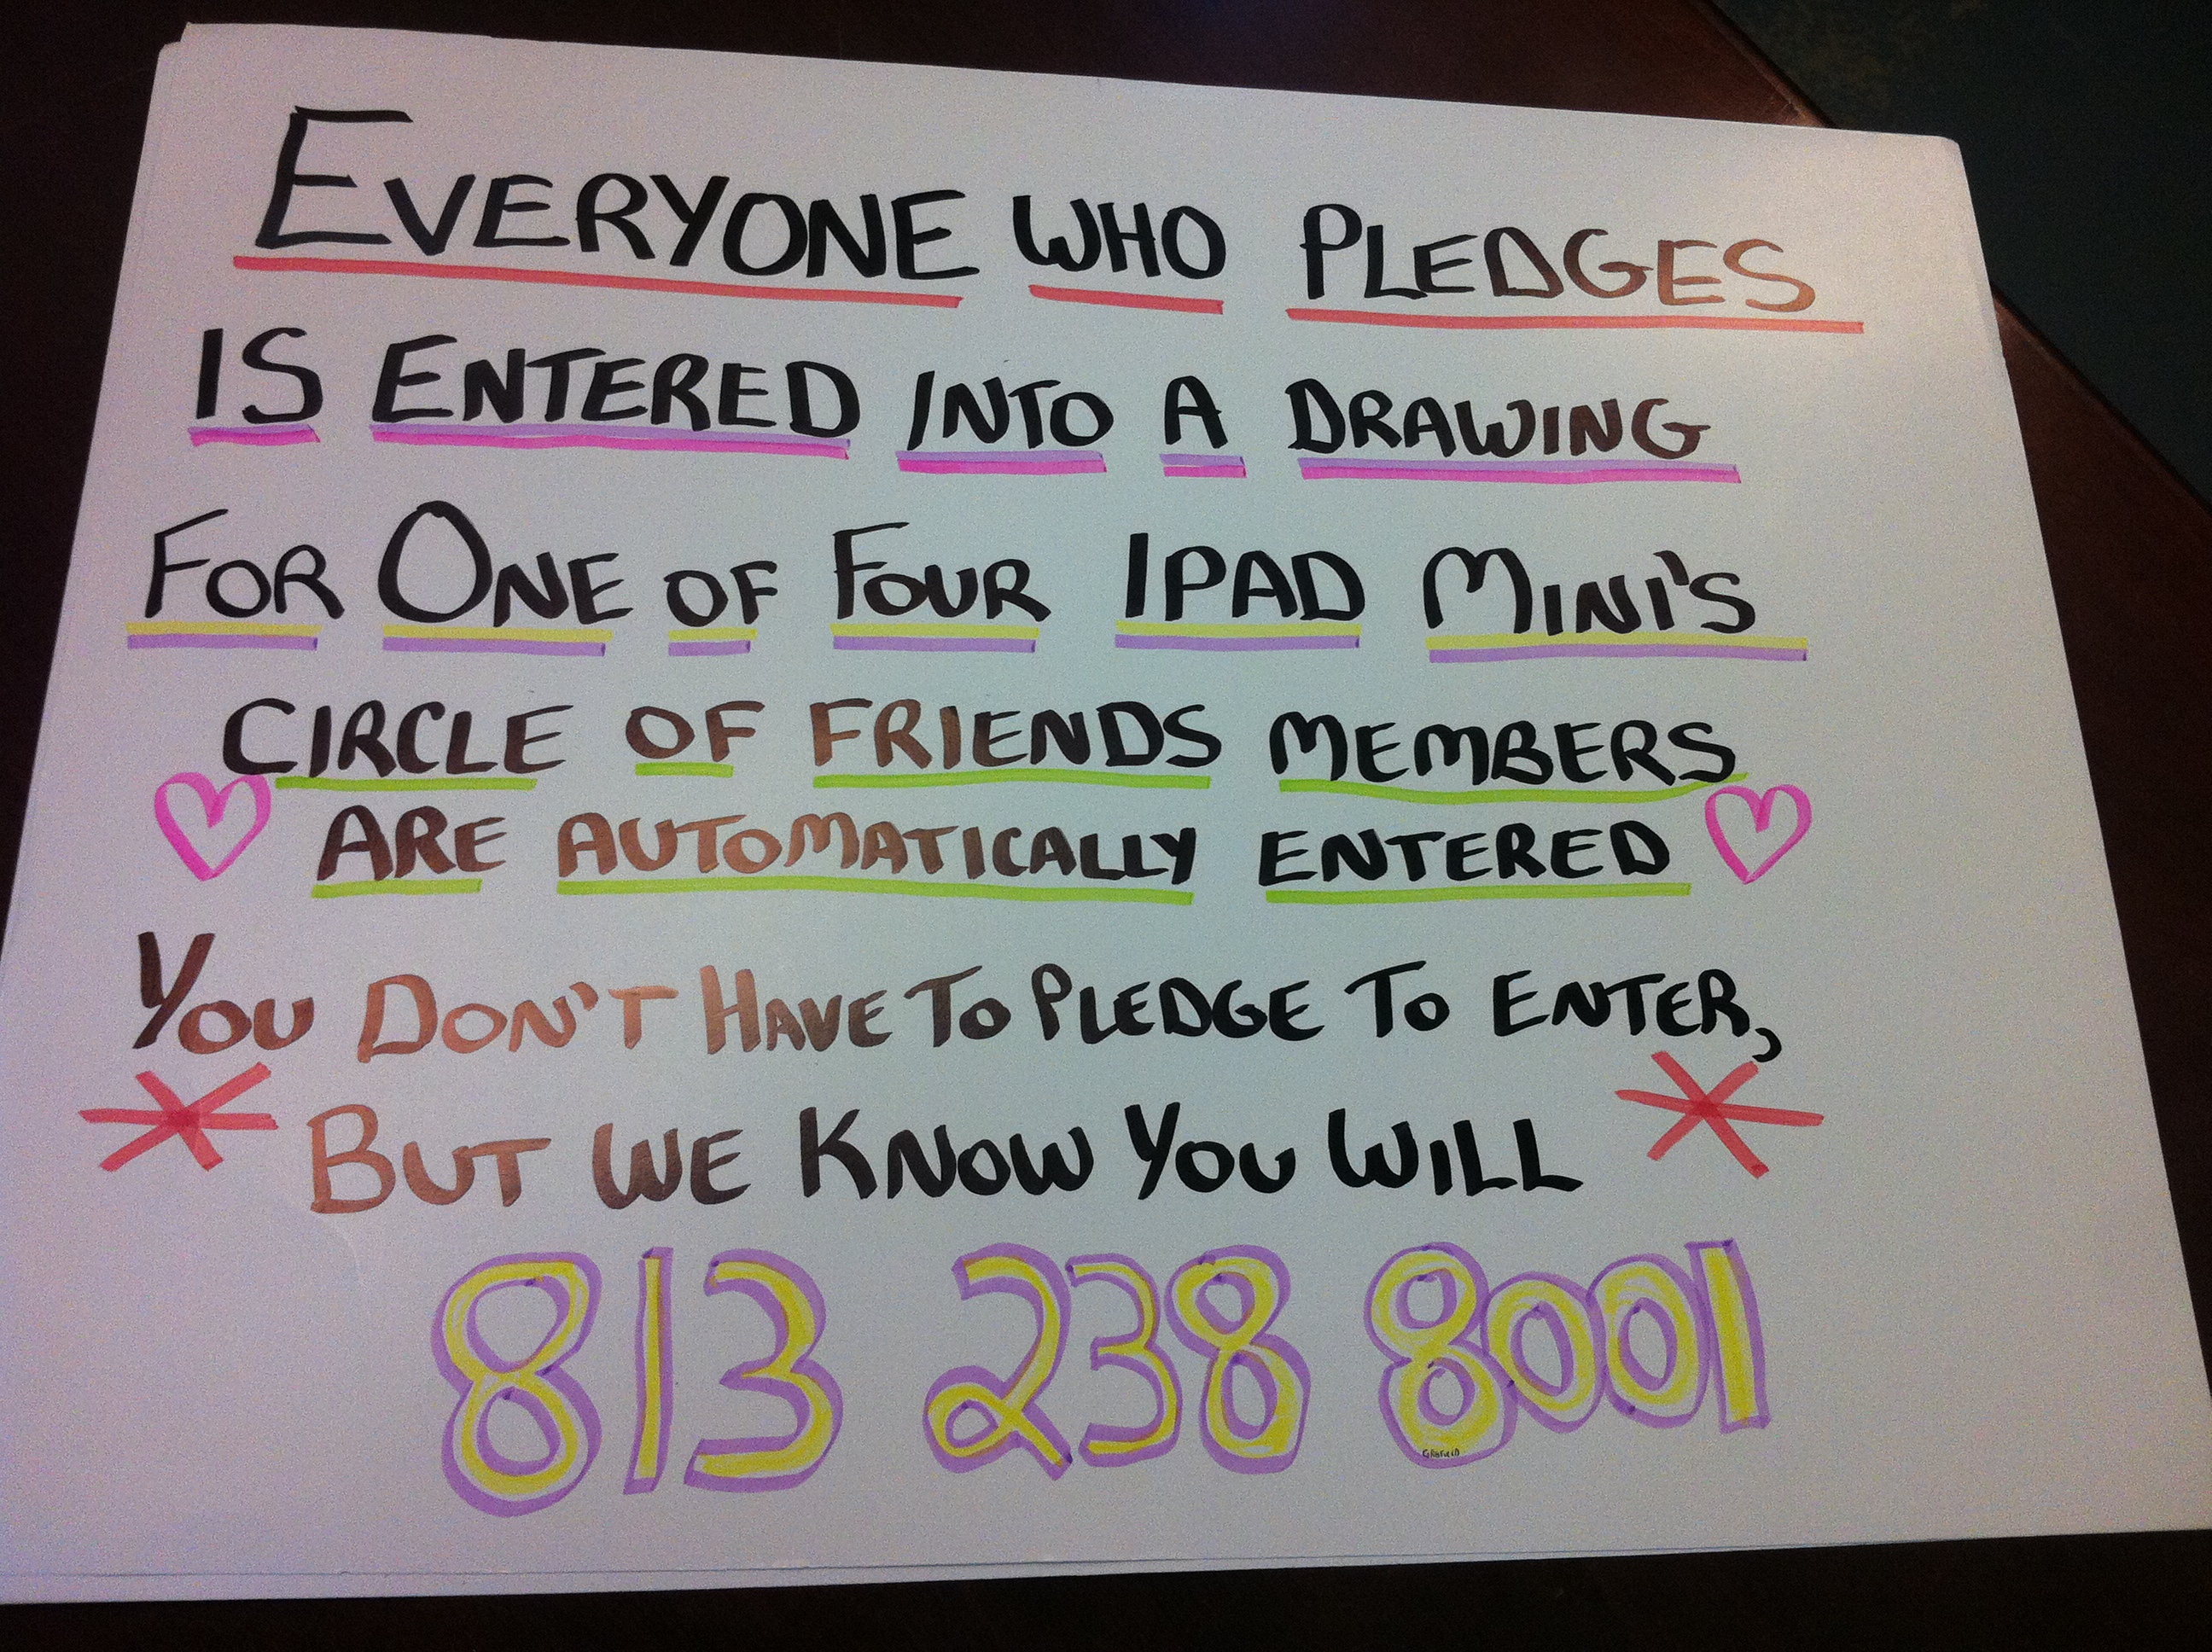 EVERYONE WHO PLEDGES
IS ENTERED INTO A DRAWING
FOR ONE OF FOUR IPAD MINI'S
CIRCLE OF FRIENDS MEMBERS
ARE AUTOMATICALLY ENTERED
YOU DON'T HAVE TO PLEDGE TO ENTER,
BUT WE KNOW YOU WILL
813 238 8001